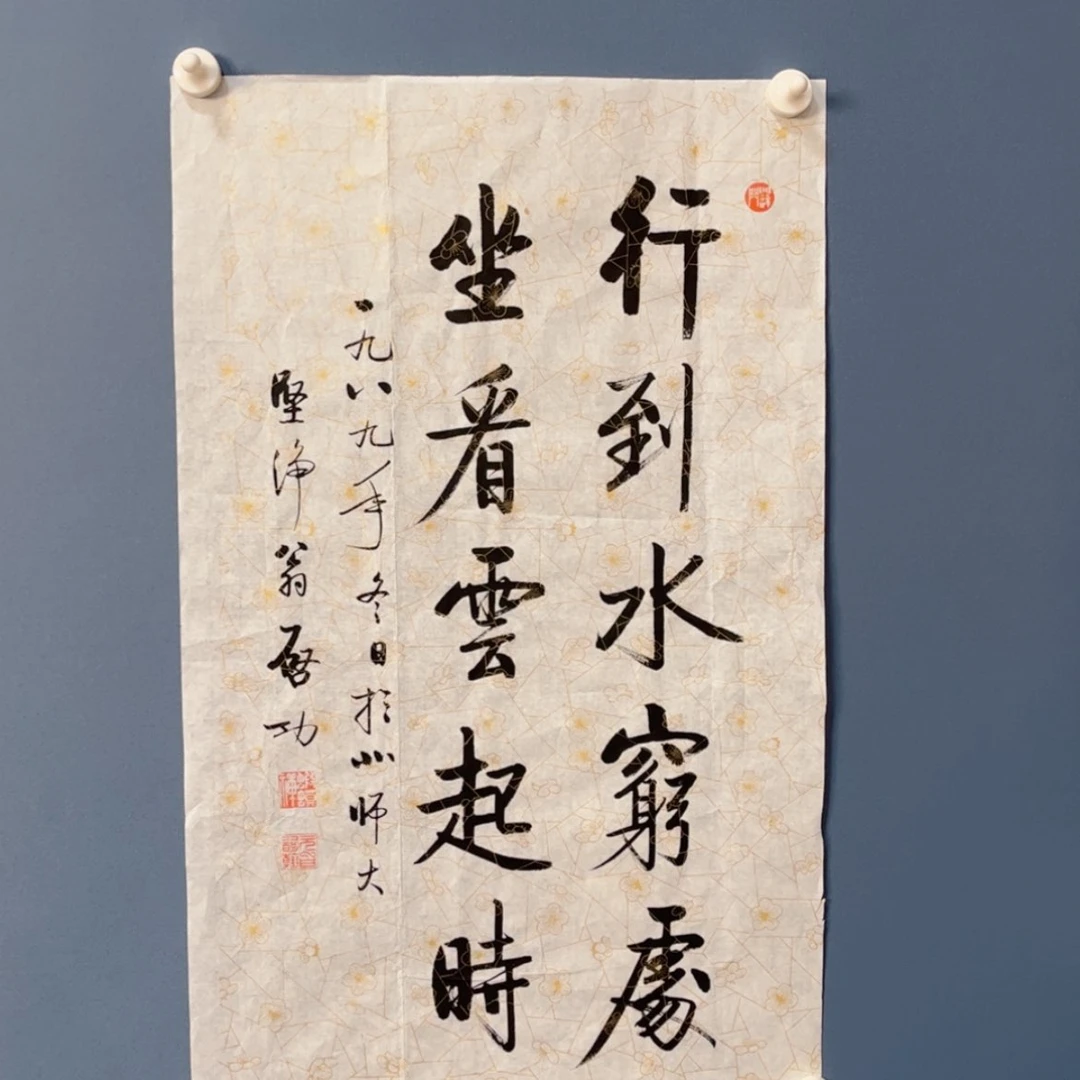 行到水窮處
坐看雲起時
一九八九年冬日於北師大
堅淨翁啓功